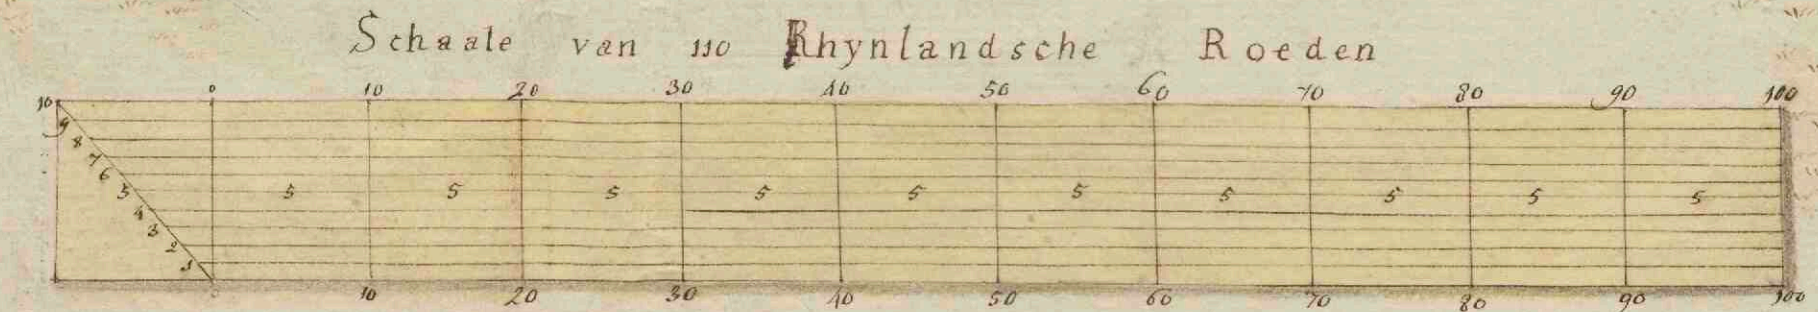 Schaale van 110 Rhynlandsche Roeden
10 0 10 20 30 40 50 60 70 80 90 100
9
8
7
6
5 5 5 5 5 5 5 5 5 5 5
4
3
2
1
0 10 20 30 40 50 60 70 80 90 100